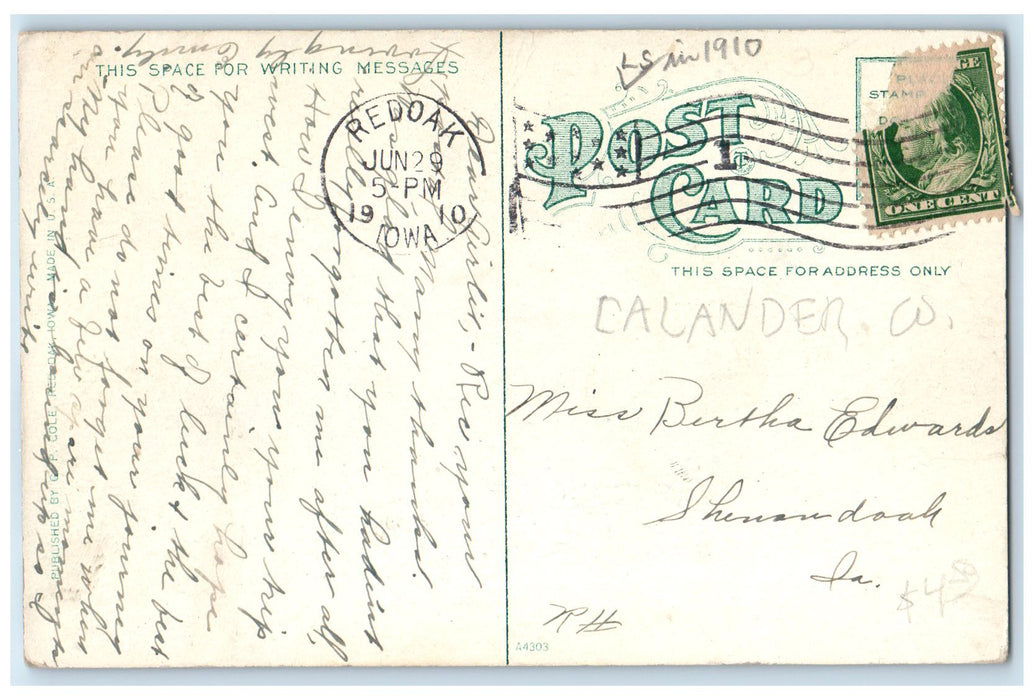 THIS SPACE FOR WRITING MESSAGES
REDOAK
JUN 29
5-PM
1910
IOWA
Dear Girlie,- Rec your
Many thanks.
that you hadent
really forgotten me after all,
How I envy you your trip
west and I certainly hope
you the best of luck & the best
of good times on your journey
Please do not forget me when
you have a
My hand is
dearly write
Lovingly
PUBLISHED BY C. F. COLE, RED OAK, IOWA. MADE IN U. S. A.
LS in 1910
POST CARD
PLACE
STAMP
ONE CENT
THIS SPACE FOR ADDRESS ONLY
CALANDER. CO.
Miss Bertha Edwards
Shenandoah
Ia.
$4
R H
A4303